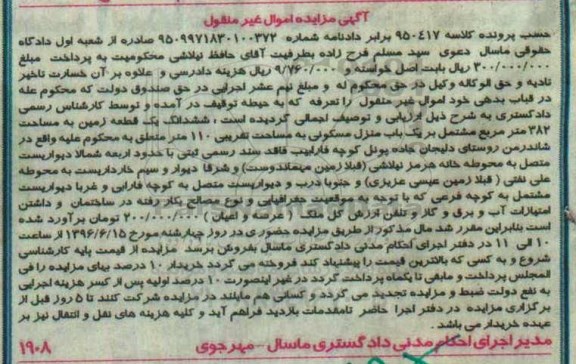 آگهی مزایده اموال غیر منقول
حسب پرونده کلاسه ۹۵۰۴۱۷ برابر دادنامه شماره ۹۵۰۹۹۷۱۸۳۰۱۰۰۳۷۳ صادره از شعبه اول دادگاه
حقوقی ماسال دعوی سید مسلم فرح زاده بطرفیت آقای حافظ نیلاشی محکومیت به پرداخت مبلغ
۳۰۰/۰۰۰/۰۰۰ ریال بابت اصل خواسته و ۹/۷۶۰/۰۰۰ ریال هزینه دادرسی و علاوه بر آن خسارت تاخیر
تادیه و حق الوکاله وکیل در حق محکوم له و مبلغ نیم عشر اجرایی در حق صندوق دولت که محکوم علیه
در قباب بدهی خود اموال غیر منقول را تعرفه که به حیطه توقیف در آمده و توسط کارشناس رسمی
دادگستری به شرح ذیل ارزیابی و توصیف اجمالی گردیده است ، ششدانگ یک قطعه زمین به مساحت
۳۸۲ متر مربع مشتمل بر یک باب منزل مسکونی به مساحت تقریبی ۱۱۰ متر متعلق به محکوم علیه واقع در
شاندرمن روستای دلیجان جاده پونل کوچه فارابیب فاقد سند رسمی ثبتی با حدود اربعه شمالا دیواریست
متصل به محوطه خانه هرمز نیلاشی (قبلا زمین میهماندوست) و شرقا دیوار و سیم خارداریست به محوطه
علی نفتی ( قبلا زمین عیسی عزیزی) و جنوبا درب و دیواریست متصل به کوچه فارابی و غربا دیواریست
مشتمل به کوچه فرعی که با توجه به موقعیت جغرافیایی و نوع مصالح بکار رفته در ساختمان و داشتن
امتیازات آب و برق و گاز و تلفن ارزش کل ملک ( عرصه و اعیان ) ۲۰۰/۰۰۰/۰۰۰ تومان برآورد شده
است بنابراین مقرر شد مال مذکور از طریق مزایده حضوری در روز چهارشنبه مورخ ۱۳۹۶/۶/۱۵ از ساعت
۱۰ الی ۱۱ در دفتر اجرای احکام مدنی دادگستری ماسال بفروش برسد مزایده از قیمت پایه کارشناسی
شروع و به کسی که بالاترین قیمت را پیشنهاد کند فروخته می گردد خریدار ۱۰ درصد بهای مزایده را فی
المجلس پرداخت و مابقی تا یکماه پرداخت گردد در غیر اینصورت ۱۰ درصد اولیه پس از کسر هزینه اجرایی
به نفع دولت ضبط و مزایده تجدید می گردد و کسانی هم مایلند در مزایده شرکت کنند تا ۵ روز قبل از
برگزاری مزایده در دفتر اجرا حاضر تامقدمات بازدید فراهم آید و کلیه هزینه های نقل و انتقال نیز بر
عهده خریدار می باشد .
مدیر اجرای احکام مدنی دادگستری ماسال – مهرجوی
۱۹۰۸